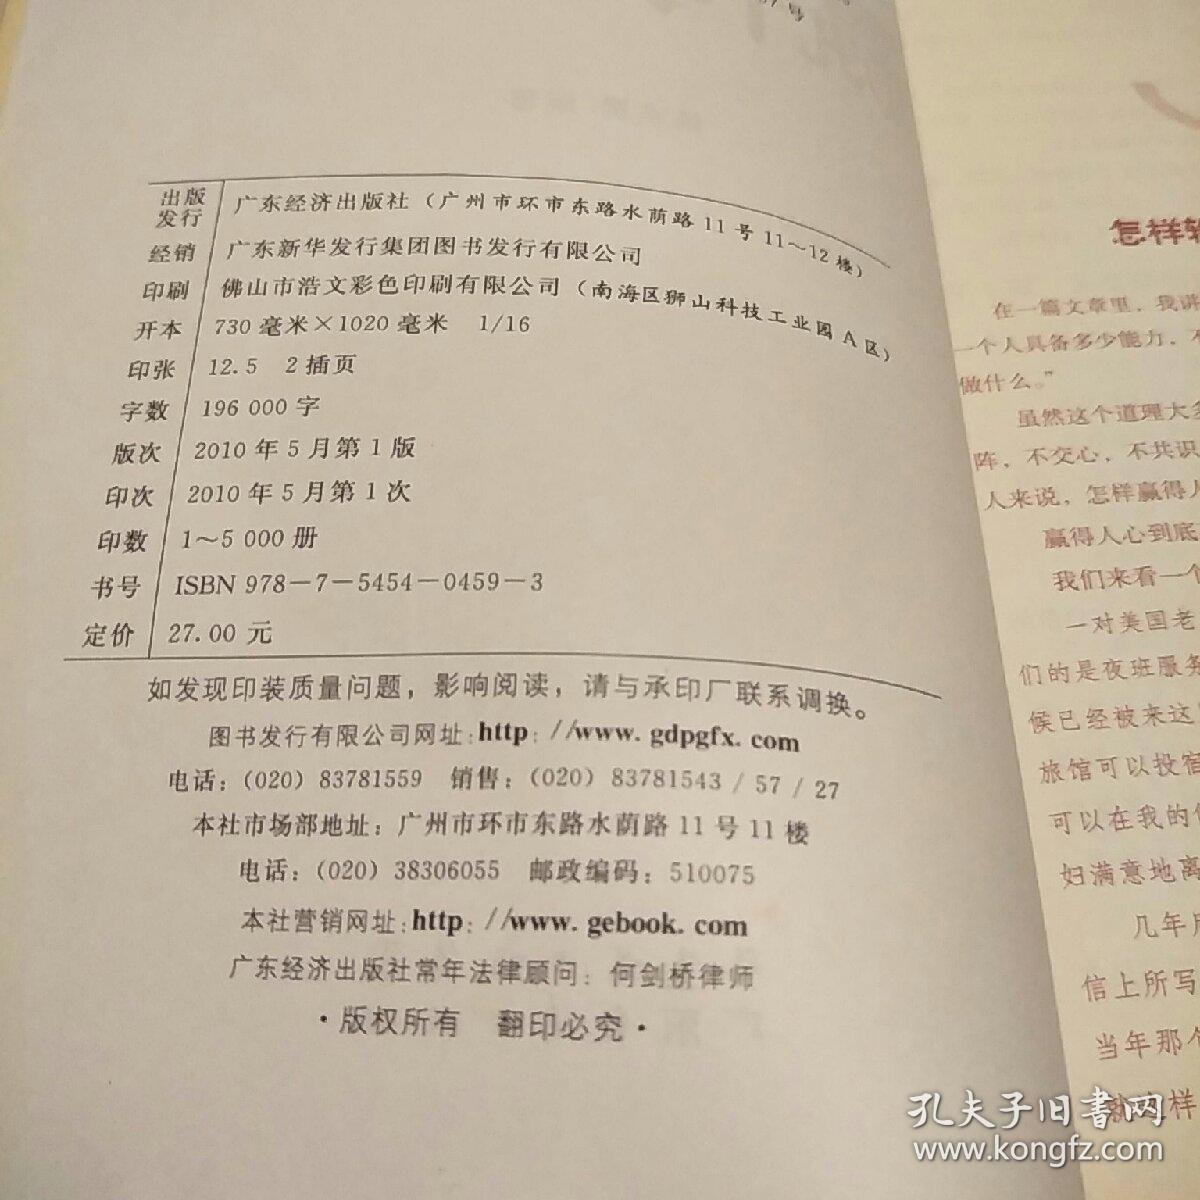 出版
发行
广东经济出版社（广州市环市东路水荫路 11 号 11～12 楼）
经销 广东新华发行集团图书发行有限公司
印刷 佛山市浩文彩色印刷有限公司（南海区狮山科技工业园 A 区）
开本 730 毫米×1020 毫米 1/16
印张 12.5 2 插页
字数 196 000 字
版次 2010 年 5 月第 1 版
印次 2010 年 5 月第 1 次
印数 1～5 000 册
书号 ISBN 978－7－5454－0459－3
定价 27.00 元
如发现印装质量问题，影响阅读，请与承印厂联系调换。
图书发行有限公司网址：http：//www. gdpgfx. com
电话：（020）83781559 销售：（020）83781543 / 57 / 27
本社市场部地址：广州市环市东路水荫路 11 号 11 楼
电话：（020）38306055 邮政编码：510075
本社营销网址：http：//www. gebook. com
广东经济出版社常年法律顾问：何剑桥律师
·版权所有 翻印必究·
怎样
在一篇文章里，我讲
一个人具备多少能力，不
做什么。”
虽然这个道理大多
阵，不交心，不共识
人来说，怎样赢得人
赢得人心到底
我们来看一个
一对美国老
们的是夜班服务
候已经被来这
旅馆可以投宿
可以在我的
妇满意地离
几年后
信上所写
当年那个
就这样
孔夫子旧书网
www.kongfz.com